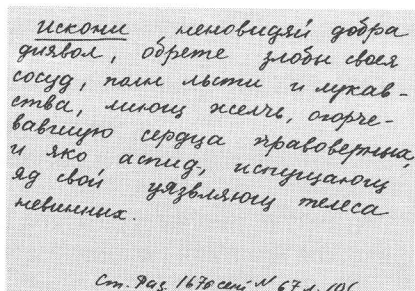 искони неновидяй добра
диявол, обрете злобы своея
сосуд, полн льсти и лукав-
ства, лиющ желчь, огорче-
вавшую сердца правоверных,
и яко аспид, испущающ
яд свой уязвляющ телеса
невинных.
Ст. Раз. 1670 сент № 67 л.